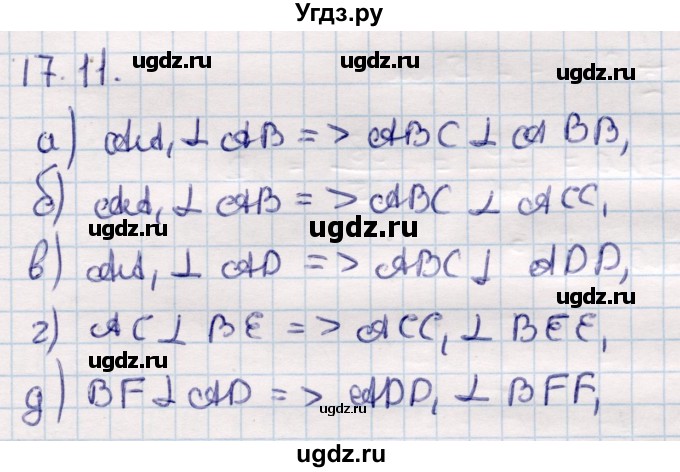 Угдз.ру
17.11.
ugdz.ru ugdz.ru
а) AA₁ ⊥ AB => ABC ⊥ ABB₁
ugdz.ru
б) AA₁ ⊥ AB => ABC ⊥ ACC₁
ugdz.ru ugdz.ru ugdz.ru
в) AA₁ ⊥ AD => ABC ⊥ ADD₁
ugdz.ru
г) AC ⊥ BE => ACC₁ ⊥ BEE₁
ugdz.ru ugdz.ru
д) BF ⊥ AD => ADD₁ ⊥ BFF₁
ugdz.ru
ugdz.ru